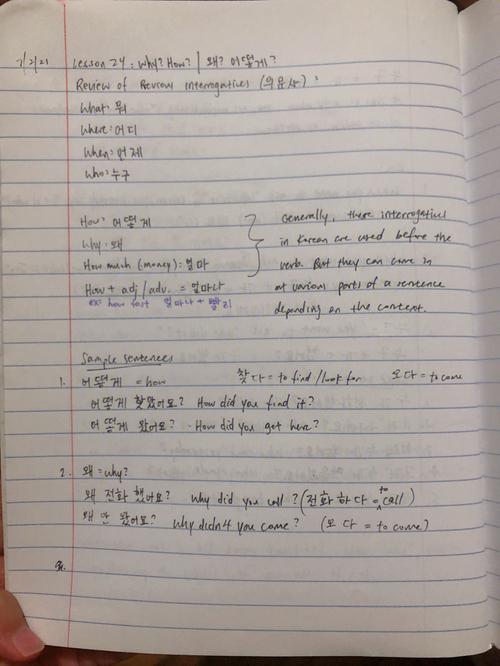 7/2/21 Lesson 24: Why? How? / 왜? 어떻게?
Review of Previous interrogatives (의문사):
What: 뭐
Where: 어디
When: 언제
Who: 누구
How: 어떻게
Why: 왜
How much (money): 얼마
How + adj / adv. = 얼마나
ex: how fast 얼마나 + 빨리
Generally, these interrogatives
in Korean are used before the
verb. But they can come in
at various parts of a sentence
depending on the context.
Sample sentences
1. 어떻게 = how 찾다 = to find / look for 오다 = to come
어떻게 찾았어요? How did you find it?
어떻게 왔어요? How did you get here?
2. 왜 = why?
왜 전화 했어요? Why did you call? (전화 하다 = to call)
왜 안 왔어요? Why didn't you come? (오다 = to come)